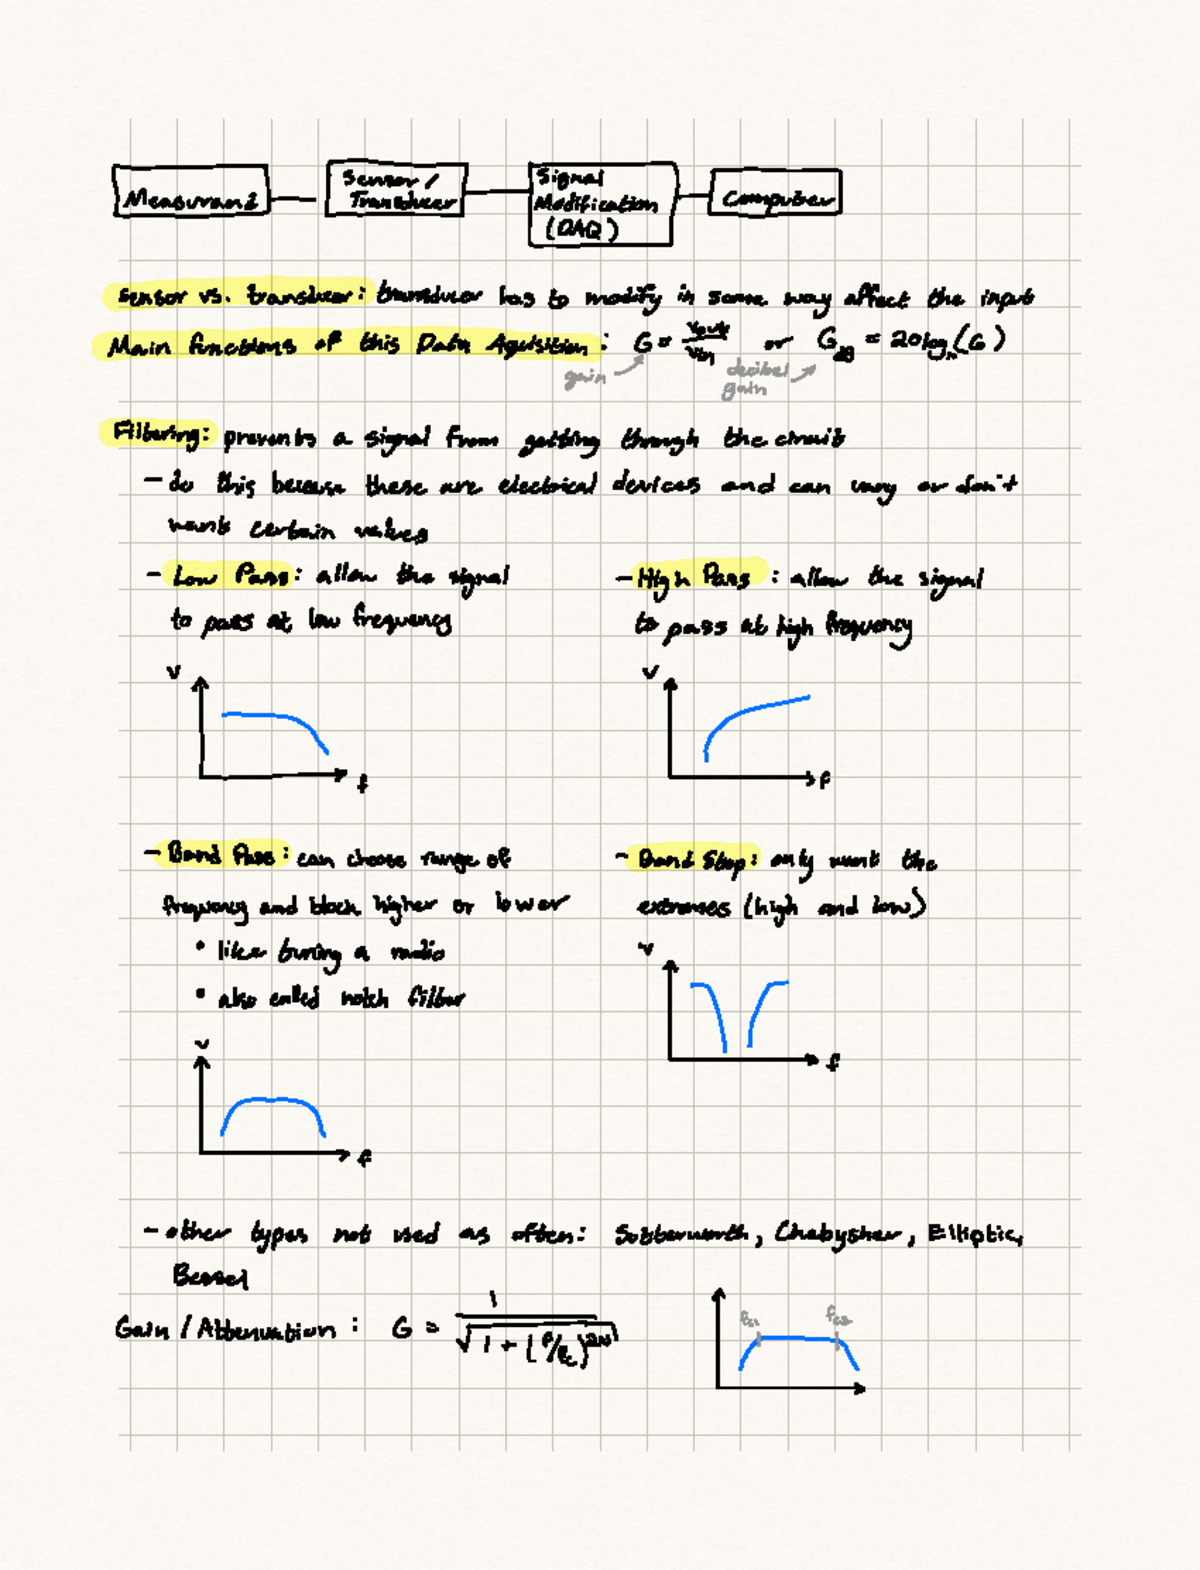 Measurand
Sensor /
Transducer
Signal
Modification
(DAQ)
Computer
Sensor vs. transducer: transducer has to modify in some way affect the input
Main functions of this Data Aquisition: G = Vout/Vin or G_dB = 20log₁₀(G)
gain
decibel
gain
Filtering: prevents a signal from getting through the circuit
- do this because these are electrical devices and can vary or don't
want certain values
- Low Pass: allow the signal
to pass at low frequency
V
f
- High Pass: allow the signal
to pass at high frequency
V
f
- Band Pass: can choose range of
frequency and block higher or lower
• like tuning a radio
• also called notch filter
V
f
- Band Stop: only want the
extremes (high and low)
V
f
- other types not used as often: Butterworth, Chebysher, Elliptic,
Bessel
Gain / Attenuation: G = 1/√(1 + (f/fc)^2N)
fc1
fc2